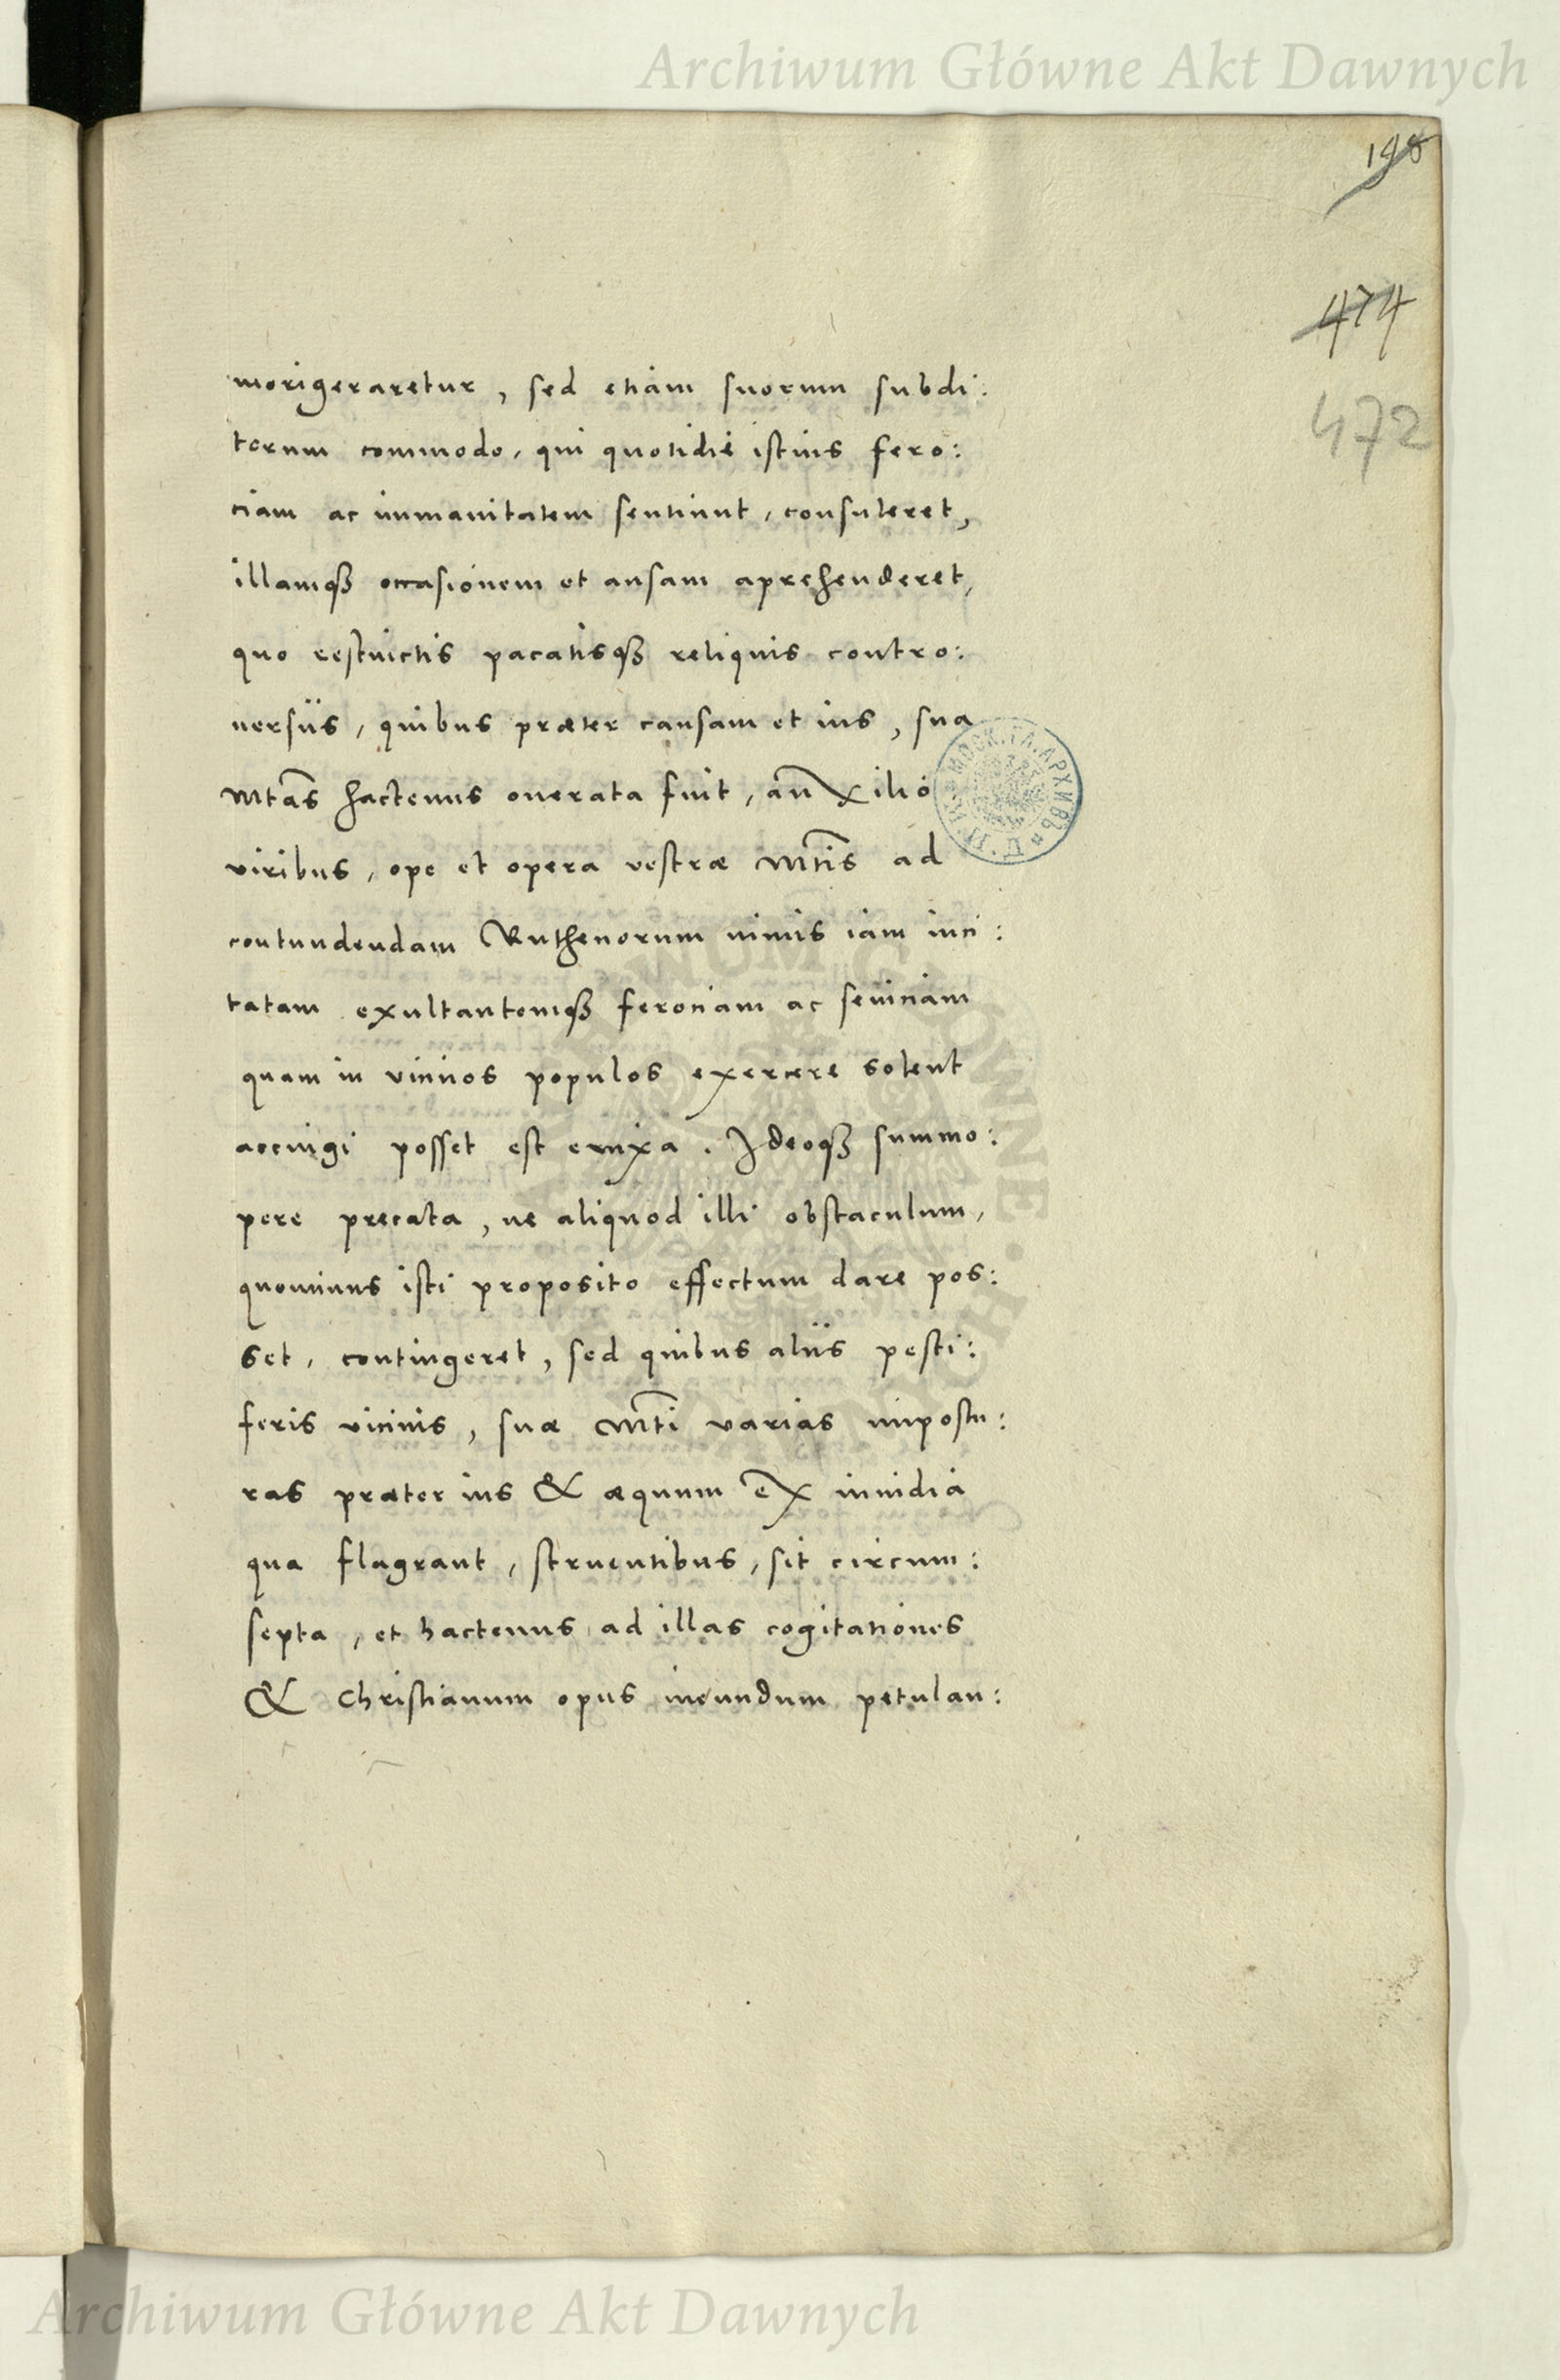 Archiwum Główne Akt Dawnych
198
474
472
morigeraretur, sed etiam suorum subdi:
torum commodo, qui quotidie istius fero:
ciam ac immanitatem sentiunt, consuleret,
illamqꝫ occasionem et ansam aprehenderet,
quo restinctis pacatisqꝫ reliquis contro:
uersiis, quibus præter causam et ius, sua
Mtas hactenus onerata fuit, auxilio
viribus, ope et opera vestræ Mtis ad
contundendam Ruthenorum nimis iam inci:
tatam exultantemqꝫ ferociam ac seuiciam
quam in vicinos populos exercere solent
accingi posset est enixa. Ideoqꝫ summo:
pere precata, ne aliquod illi obstaculum,
quominus isti proposito effectum dare pos:
set, contingeret, sed quibus aliis pesti:
feris vicinis, suæ Mti varias impostu:
ras præter ius & æquum ex inuidia
qua flagrant, struentibus, sit circum:
septa, et hactenus ad illas cogitationes
& Christianum opus ineundum petulan:
Archiwum Główne Akt Dawnych